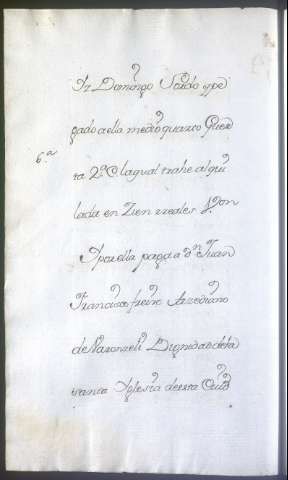 Fr Domingo Sordo ype
gado a ella medio quarto Quen
6.a
ta 2.º C la qual trahe alqui
lada en Zien reales Von
Y por ella paga a Dn Juan
Francisco freire Arzediano
de Nazonzeli Dignidad dela
santa Yglesia desta Ciud